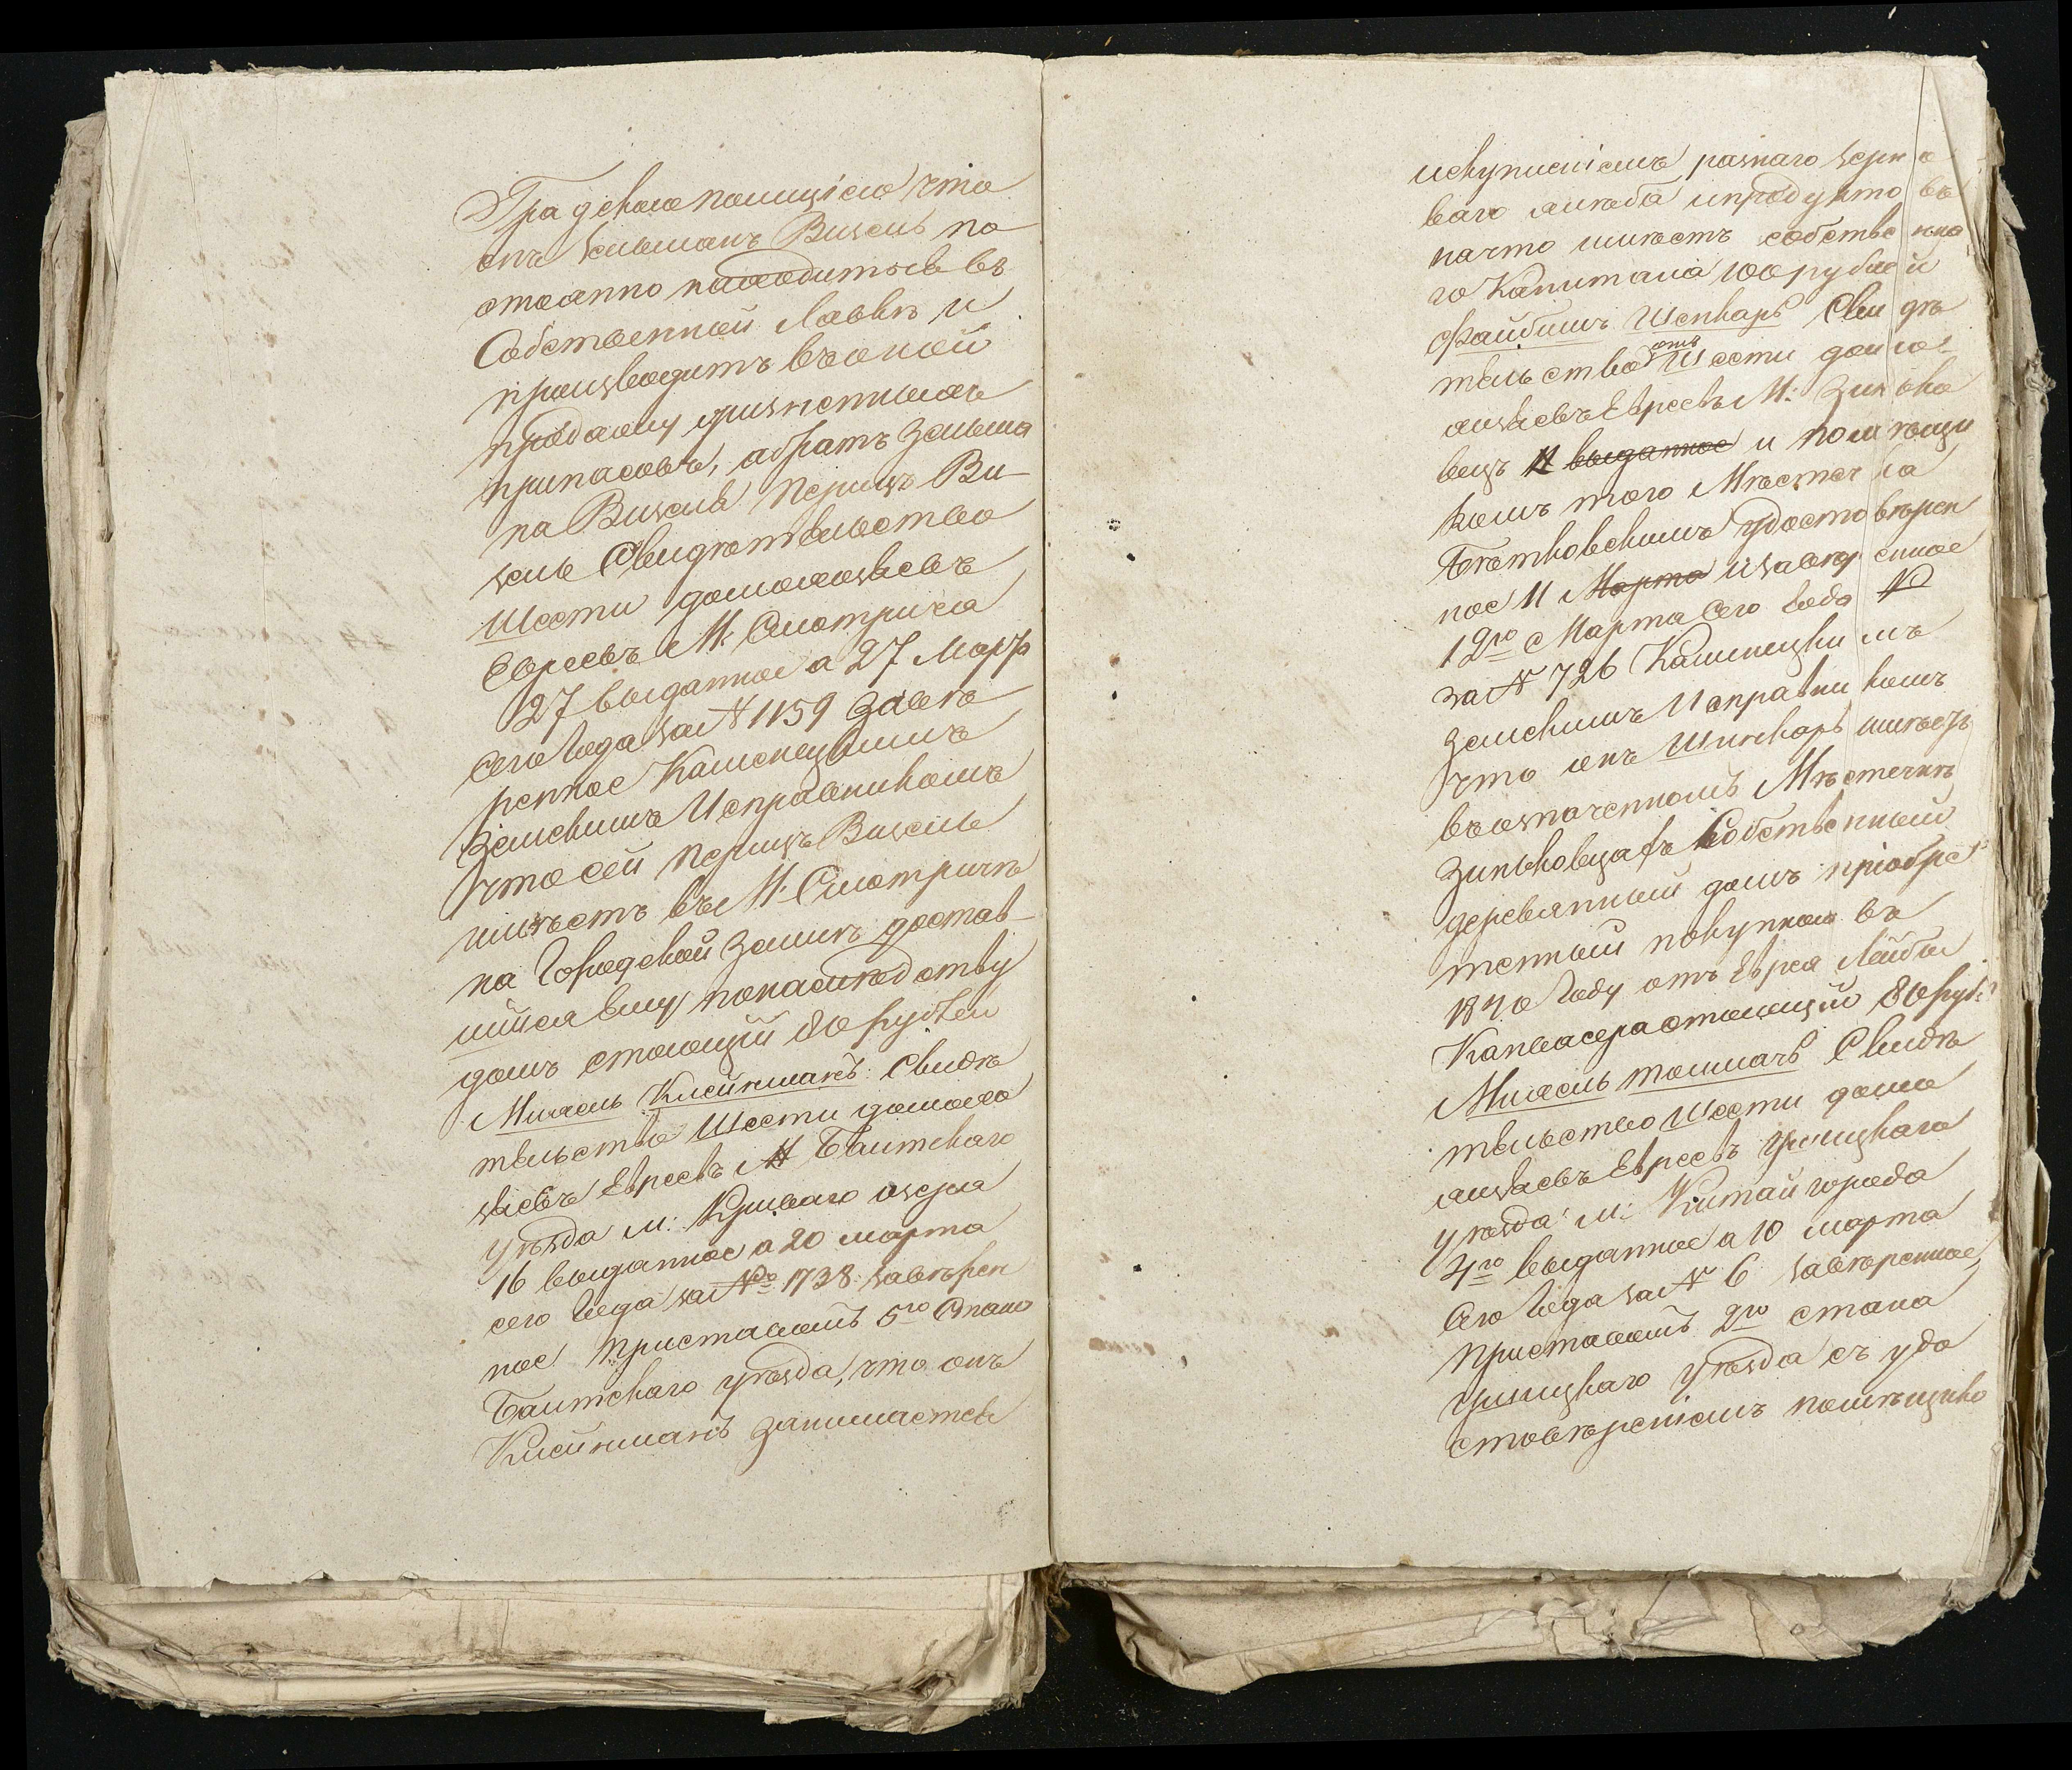 Градскою полициею что
онъ Зельманъ Визель по
стоянно находиться въ
Собственной Лавкѣ и
производитъ въ оной
продажу жизненныхъ
припасовъ, а братъ Зельма
на Визеля Перицъ Ви-
зель Свидѣтельство
Шести домохозяевъ
Евреевъ М: Смотрича
27 выданное а 27 Мар
сего Года за № 1159 завѣ
ренное Каменецкимъ
Земскимъ Исправникомъ
что сей Перицъ Визель
имѣетъ въ М. Смотричѣ
на Городской Землѣ достав-
шійся ему по наслѣдству
домъ стоющій 80 рублей
Михель Клейнманъ: Свидѣ
тельство Шести домохо
зяевъ Евреевъ М Балтскаго
уѣзда м: Криваго озера
16 выданное а 20 марта
сего Года за № 1738 завѣрен
ное Приставомъ 5го Стана
Балтскаго уѣзда, что онъ
Клейнманъ занимается
искупленіемъ разнаго зерно
ваго хлѣба и продуктовъ
на что имѣетъ собственна
го Капитала 100 рублей
Файбишъ Шенкаръ Свидѣ
тельство отъ Шести домо
хозяевъ Евреевъ М: Зинько
вецъ 11 выданное и помѣщи
комъ того Мѣстечка
удостовѣрен
ное 11 Марта и завѣренное
12го Марта сего Года №
за № 726 Каменецкимъ
Земскимъ Исправникомъ
что онъ Шенкаръ имѣетъ
въ означенномъ Мѣстечкѣ
Зиньковецахъ Собственный
деревянный домъ пріобре
тенный покупкою въ
1840 Году отъ Еврея Лейбы
стоющій 80 руб:
Михель Толмачъ Свидѣ
тельство Шести домо
хозяевъ Евреевъ Ушицкаго
уѣзда м: Китай города
4го выданное а 10 марта
Сего Года за № 6 завѣренное
Приставомъ 2го стана
Ушицкаго уѣзда съ удо
стовѣреніемъ помѣщико